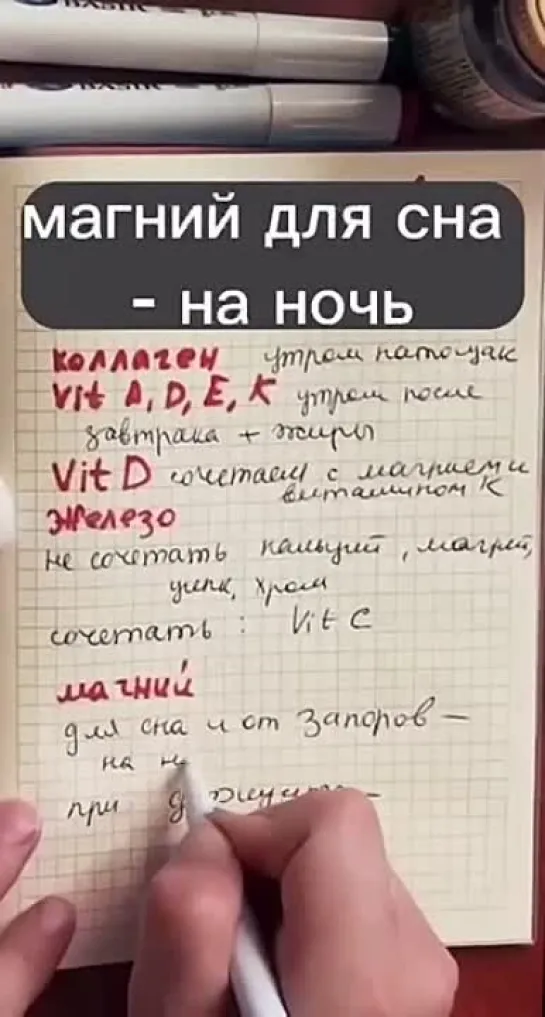 магний для сна
- на ночь
коллаген утром натощак
Vit A, D, E, K утром после
завтрака + жиры
Vit D сочетаем с магнием и
витамином К
Железо
не сочетать кальций, магний,
цинк, хром
сочетать : Vit C
магний
для сна и от запоров –
на н
при